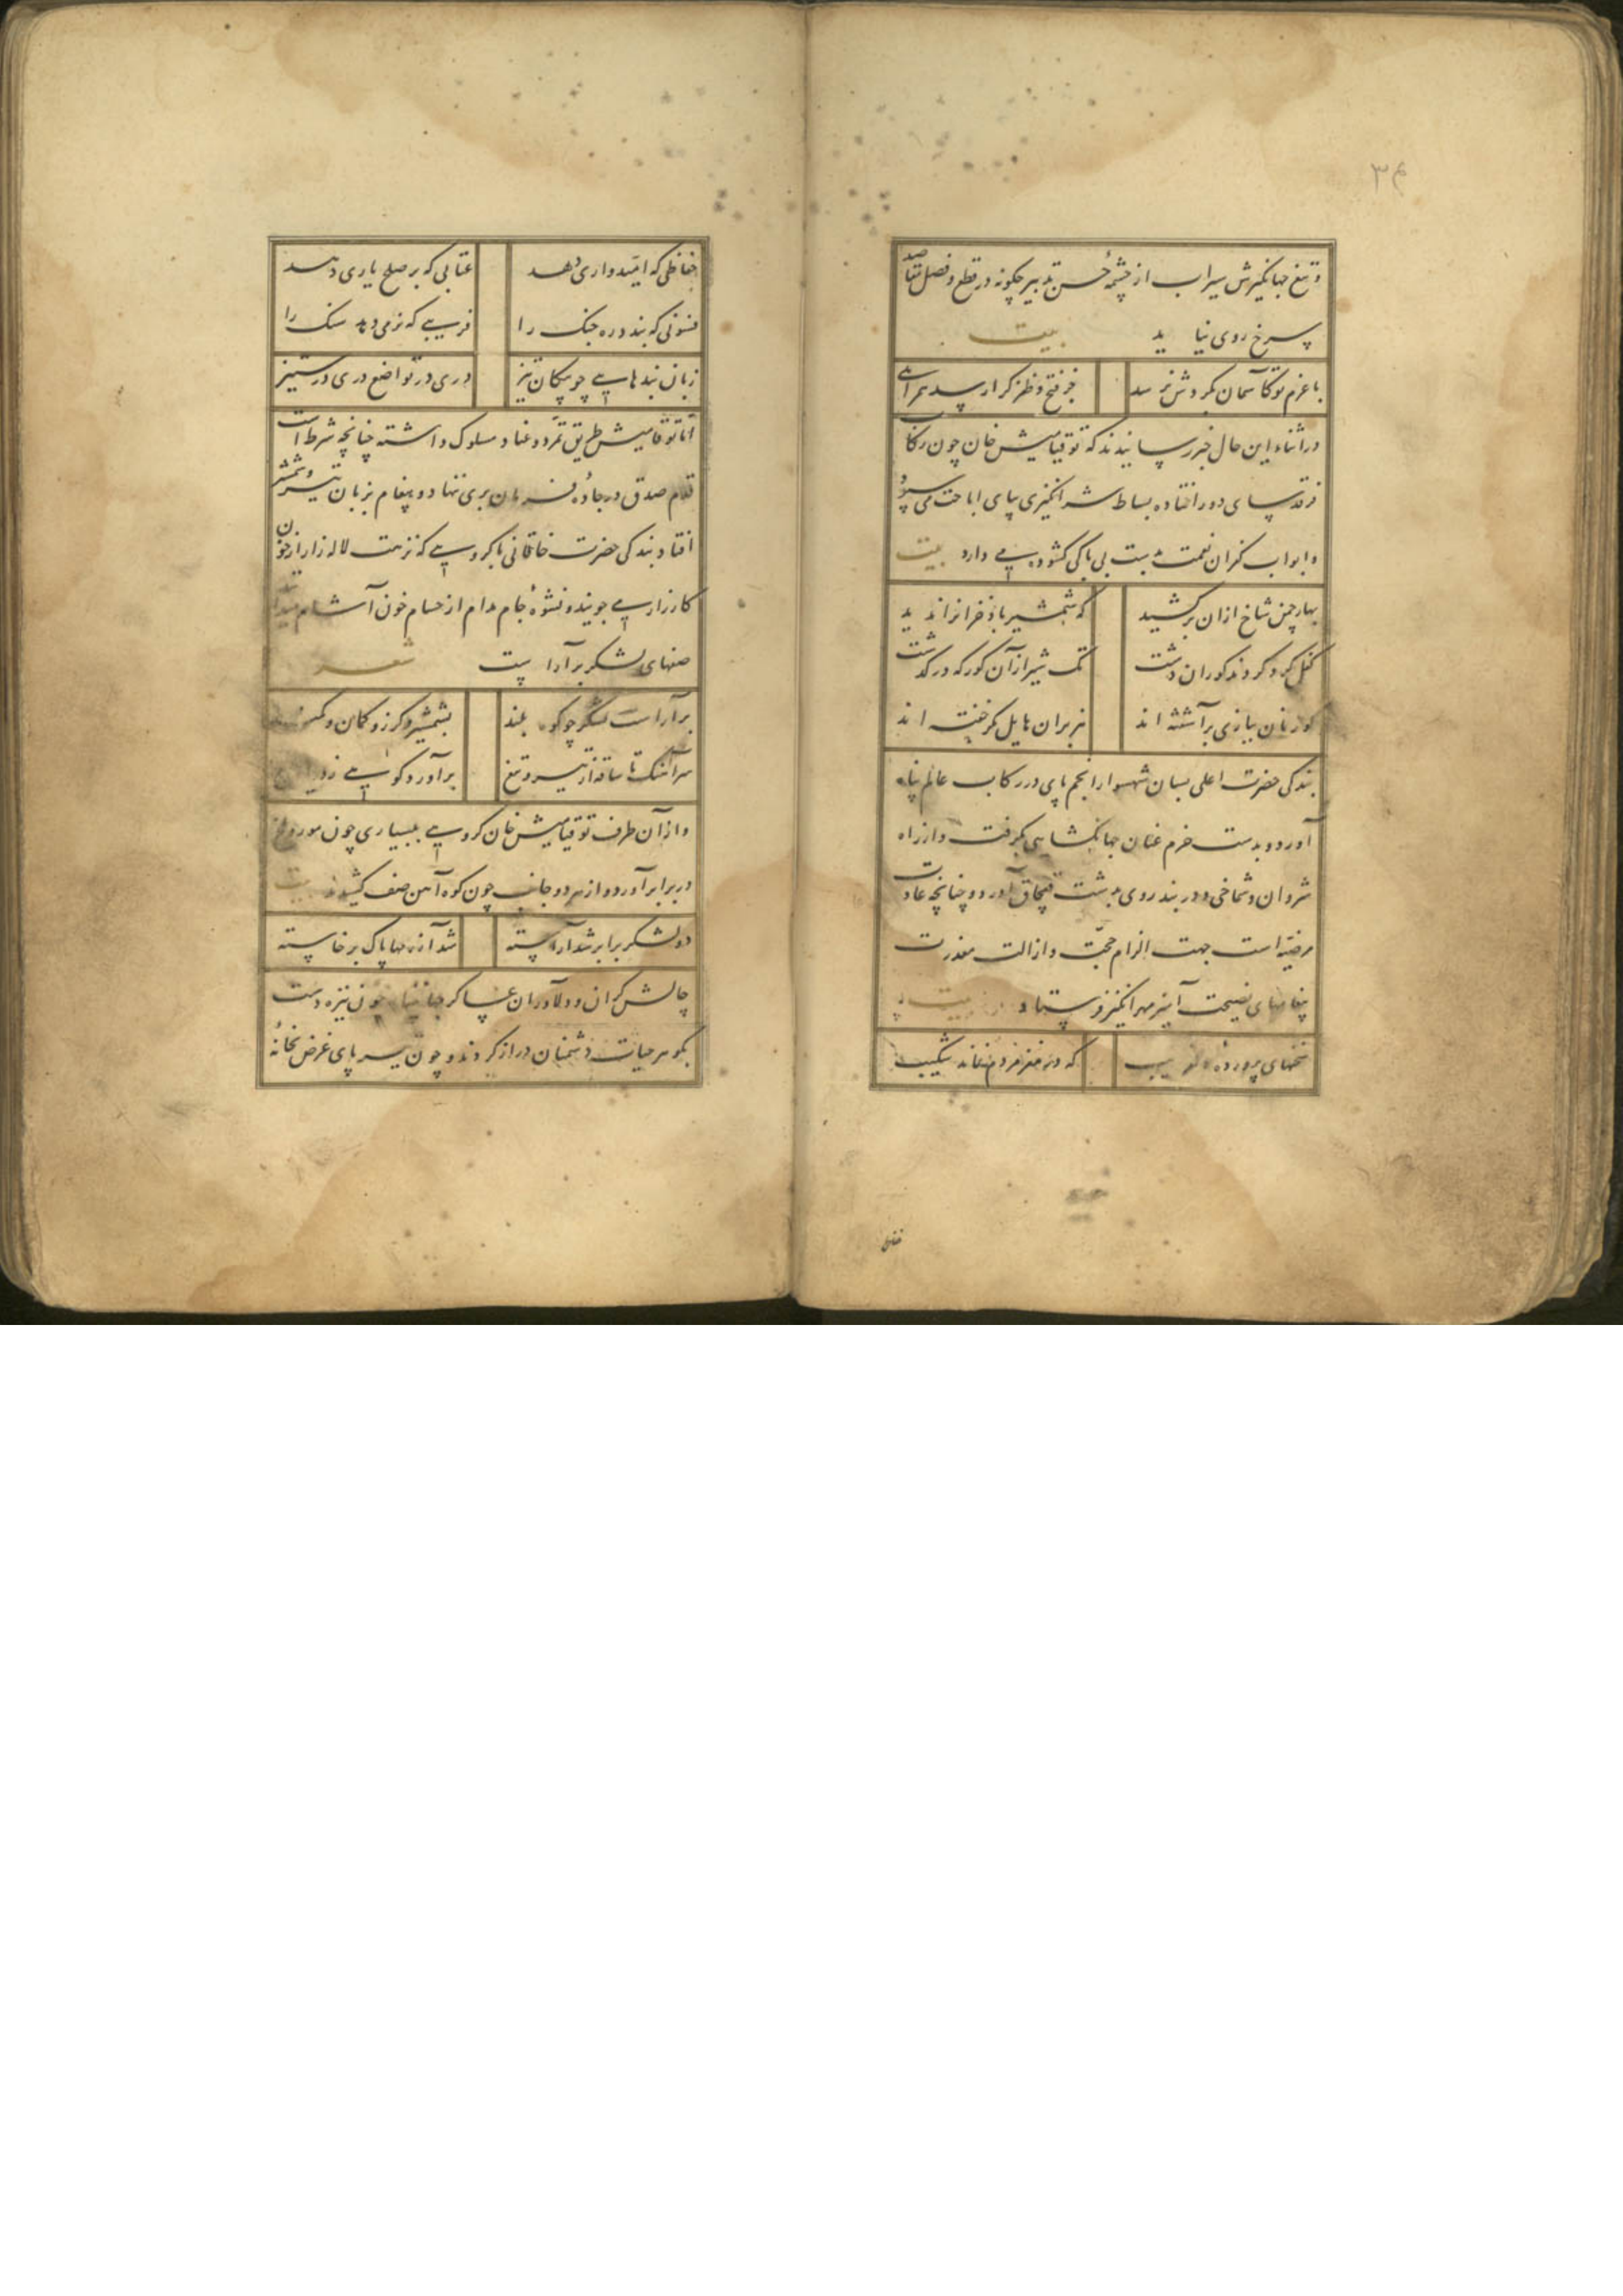 ۳۴
و تیغ جهانگیرش سیراب از چشمهٔ حسن تدبیر چکونه در قطع و فصل مقاصد
سرخ روی نیاید بیت
با عزم تو کآسمان بکردش نرسد جز فتح و ظفر کرا رسد همراهی
در اثناء این حال خبر رسانیدند که توقتامیش خان چون رکاب
فرقد سای دور افتاده بساط شر انکیزی بپای اباحت می سپرد
و ابواب کفران نعمت بدست بی باکی کشوده می دارد بیت
بهار چمن شاخ از آن برکشید که شمشیر باد خزانرا ندید
کفل کرد کردند کوران دشت تک شیر از آن کور که درکذشت
کوزنان ببازی برآشفته اند هزبران هایل مکر خفته اند
بندکی حضرت اعلی بسان شهسوار انجم پای در رکاب عالم پناه
آورد و بدست حزم عنان جهانکشایی بکرفت و از راه
شروان و شماخی و دربند روی بدشت قبچاق آورد و چنانچه عادت
مرضیّه است جهت الزام حجّت و ازالت معذرت
پیغامهای نصیحت آمیز مهرانکیز فرستاد بیت
سخنهای پرورده که در مغز مردم نماند شکیب
خفاظی که امّیدواری دهد عتابی که بر صلح یاری دهد
فسونی که بندد ره جنک را فریبی که نرمی دهد سنک را
زبان بندهایی چو پیکان تیز دری در تواضع دری در ستیز
امّا توقتامیش طریق تمرّد و عناد مسلوک داشته چنانچه شرط است
قدم صدق در جادهٔ فرمان بری ننهاد و پیغام بزبان تیر و شمشیر
افتاد بندکی حضرت خاقانی با کروهی که نزهت لاله زار از خون
کارزار می جویند و نشوهٔ جام مدام از حسام خون آشام
صفهای لشکر برآراست شعر
برآراست لشکر چو کوه بلند بشمشیر و کرز و کمان و کمند
سرآهنک تا ساقه از تیر و تیغ برآورد کوهی
و از آن طرف توقتامیش خان کروهی ببسیاری چون مور و ملخ
در برابر آورد و از هر دو جانب چون کوه آهن صف کشیدند بیت
دو لشکر برابر شد آراسته شد آزرمها پاک برخاسته
چالش کران و دلاوران عساکر چون نیزه دست
بکوهر حیات دشمنان دراز کردند و چون سر پای غرض نخانهٔ